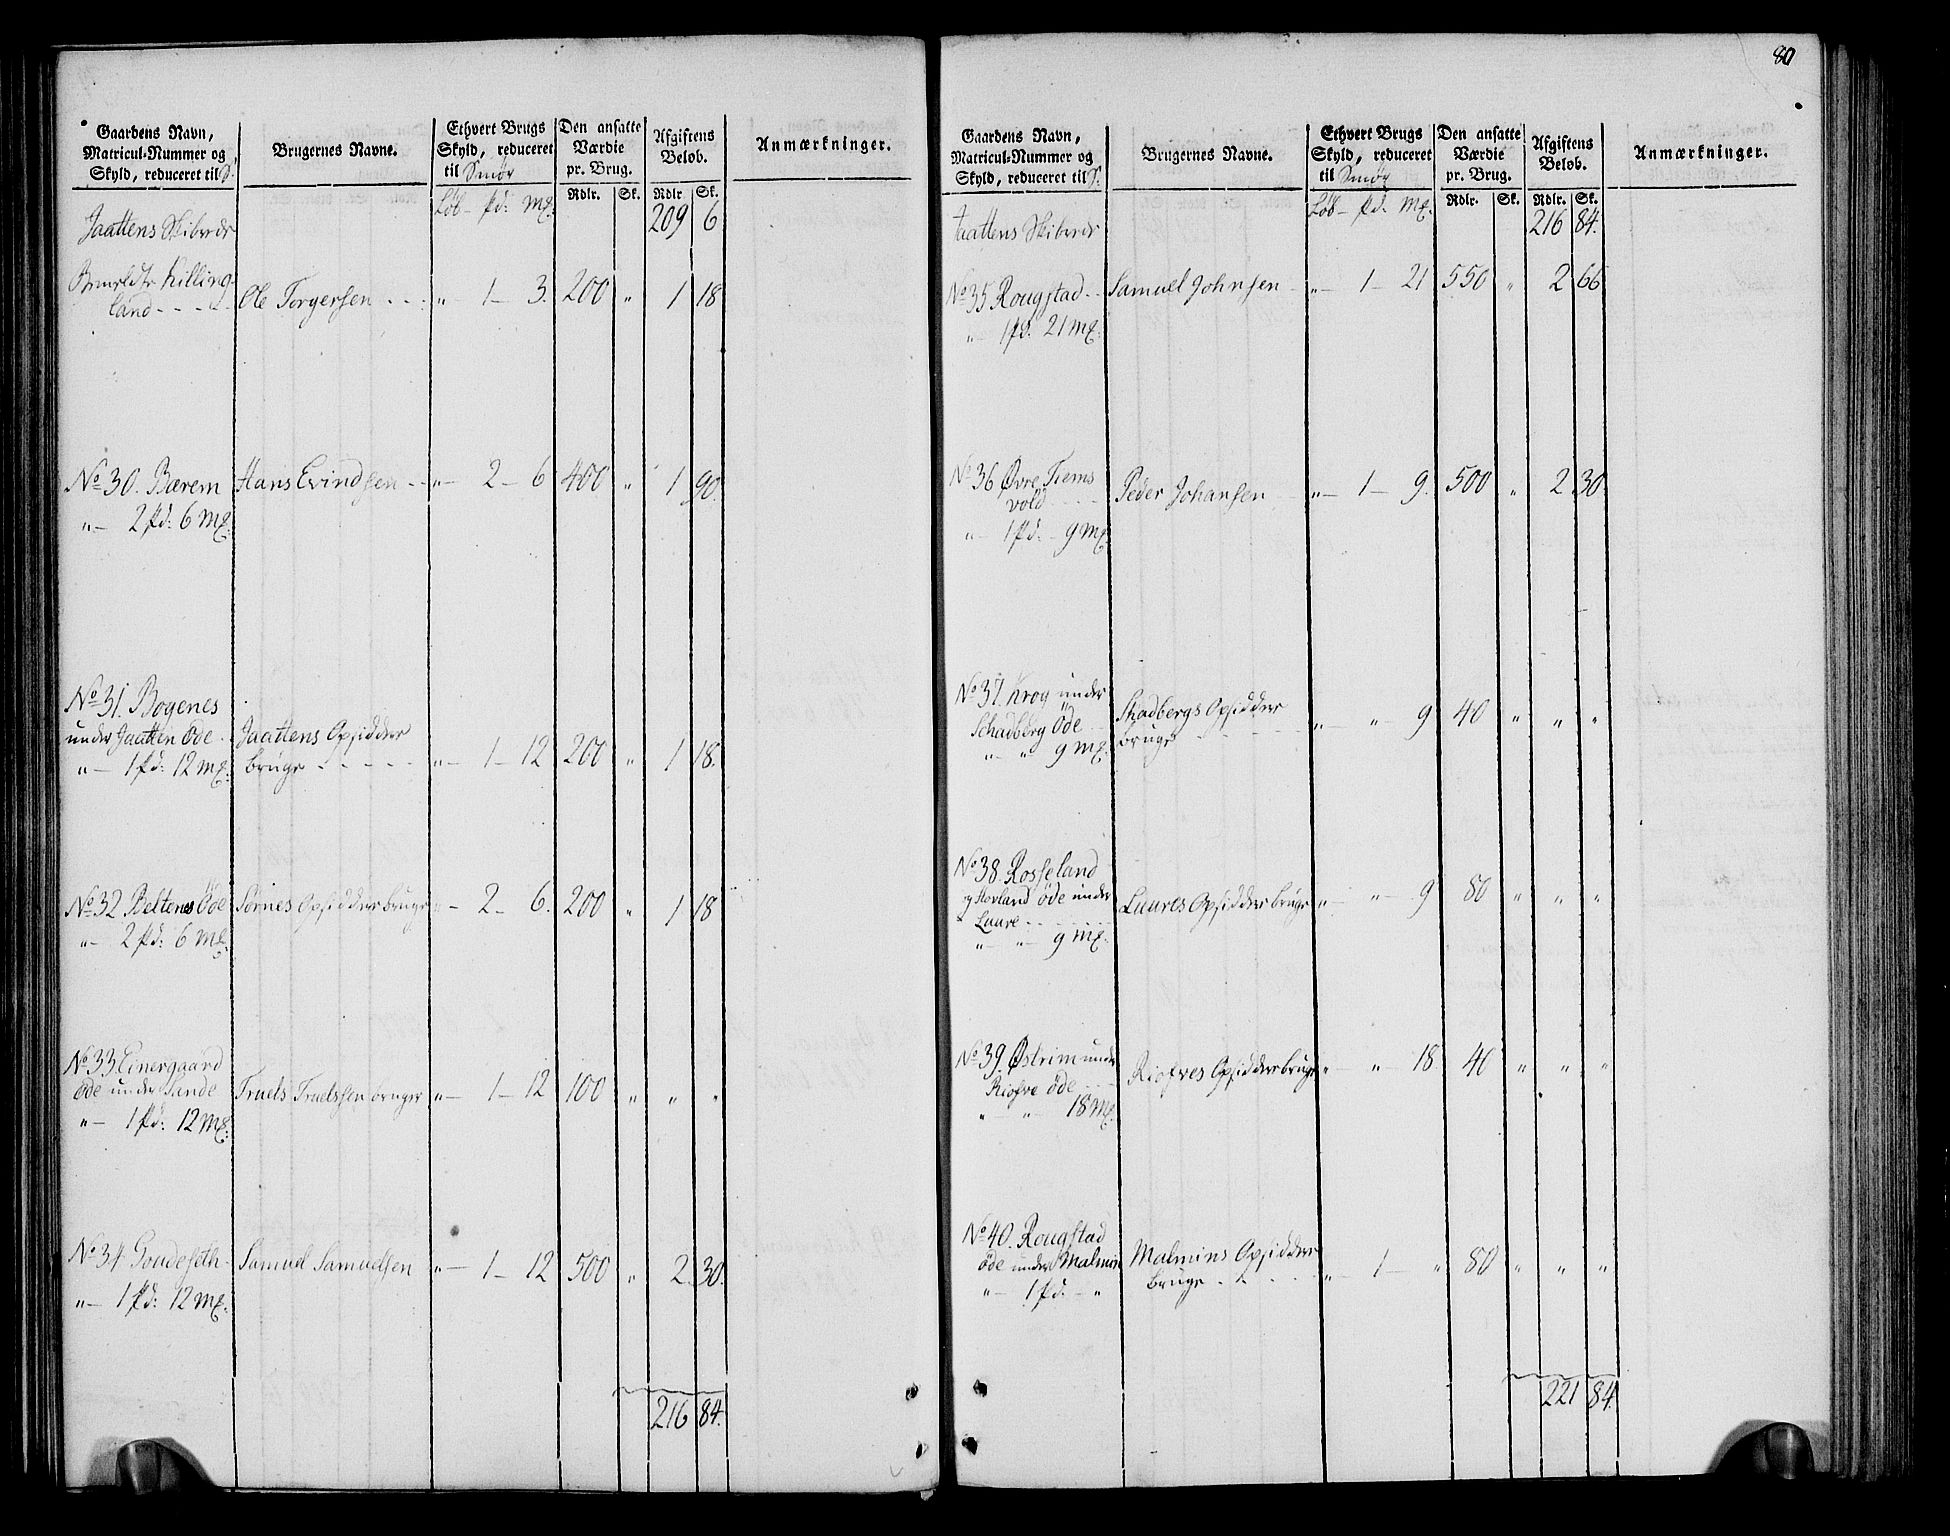 80
Gaardens Navn, Matricul-Nummer og Skyld, reduceret til S.
Brugernes Navne.
Ethvert Brugs Skyld, reduceret til Smör
Den ansatte Værdie pr. Brug.
Afgiftens Beløb.
Anmærkninger.
Löb – pd: mg:
Rdlr. Sk. Rdlr Sk.
Jaattens Skibrede 209 6
Killing-
land - - - - Ole Torgersen - - - „ 1 – 3. 200 „ 1 18
No 30. Bærem Hans Evindsen - - „ – 2 – 6 400 „ 1 90.
„ – 2 pd: 6 mg:
No 31. Bogenes
under Jaatten öde - Jaattens Opsidder
„ – 1 pd: 12 mg: bruge - - - - - „ – 1 – 12 200 „ 1 18.
No 32 Beltenes Öde Sörnes Opsidder bruge „ – 2 – 6. 200 „ 1 18
„ – 2 pd: 6 mg:
No 33. Einergaard
öde under Sande Truels Truelssen bruger „ – 1 – 12 100 „ „ „
„ – 1 pd: 12 mg:
No 34 Goudeseth - Samuel Samuelsen „ – 1 – 12 500 „ 2. 30.
„ – 1 pd: 12 mg:
216 84.
Gaardens Navn, Matricul-Nummer og Skyld, reduceret til S.
Brugernes Navne.
Ethvert Brugs Skyld, reduceret til Smör
Den ansatte Værdie pr. Brug.
Afgiftens Beløb.
Anmærkninger.
Löb – pd: mg.
Rdlr. Sk. Rdlr. Sk.
Jaattens Skibrede 216 84.
No 35 Rougstad - - Samuel Johnsen - „ – 1 – 21 550 „ 2 66
„ – 1 pd: 21 mg.
No 36 Øvre Tiems
vold - - - Peder Johansen „ – 1 – 9. 500 „ 2 30.
„ – 1 pd: – 9 mg:
No 37. Krog under Skadbergs Opsidder
Schadberg öde bruge - - - - - „ „ 9 40 „ „ „
„ – „ 9 mg:
No 38. Rosseland
og Hovland öde under Luures Opsidder bruge „ – „ – 9 80 „ „ „
Luure - - - -
„ – „ – 9 mg.
No 39. Østrim under
Riofre öde - - - Riofres Opsidder bruge „ – „ 18 40 „ „ „
„ „ – 18 mg.
No 40. Rougstad
öde under Malmin Malmins Opsidder
„ – 1 pd: – „ bruge - - - - - „ – 1 – „ 80 „ „ „
221 84.